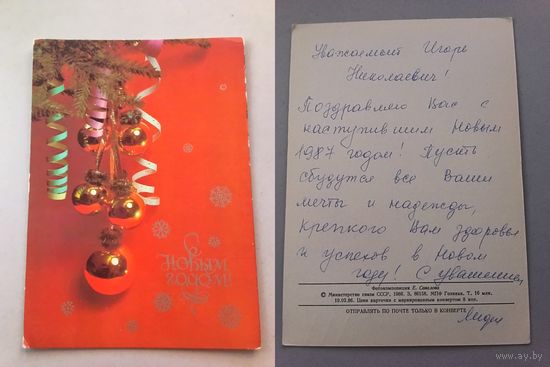 С Новым
годом!
Уважаемый Игорь
Николаевич!
Поздравляю Вас с
наступившим Новым
1987 годом! Пусть
сбудутся все Ваши
мечты и надежды,
крепкого Вам здоровья
и успехов в Новом
году! С уважением
Фотокомпозиция Е. Савалова
© Министерство связи СССР, 1986. З. 86158. МПФ Гознака. Т. 16 млн.
19.03.86. Цена карточки с маркированным конвертом 8 коп.
ОТПРАВЛЯТЬ ПО ПОЧТЕ ТОЛЬКО В КОНВЕРТЕ
www.ay.by